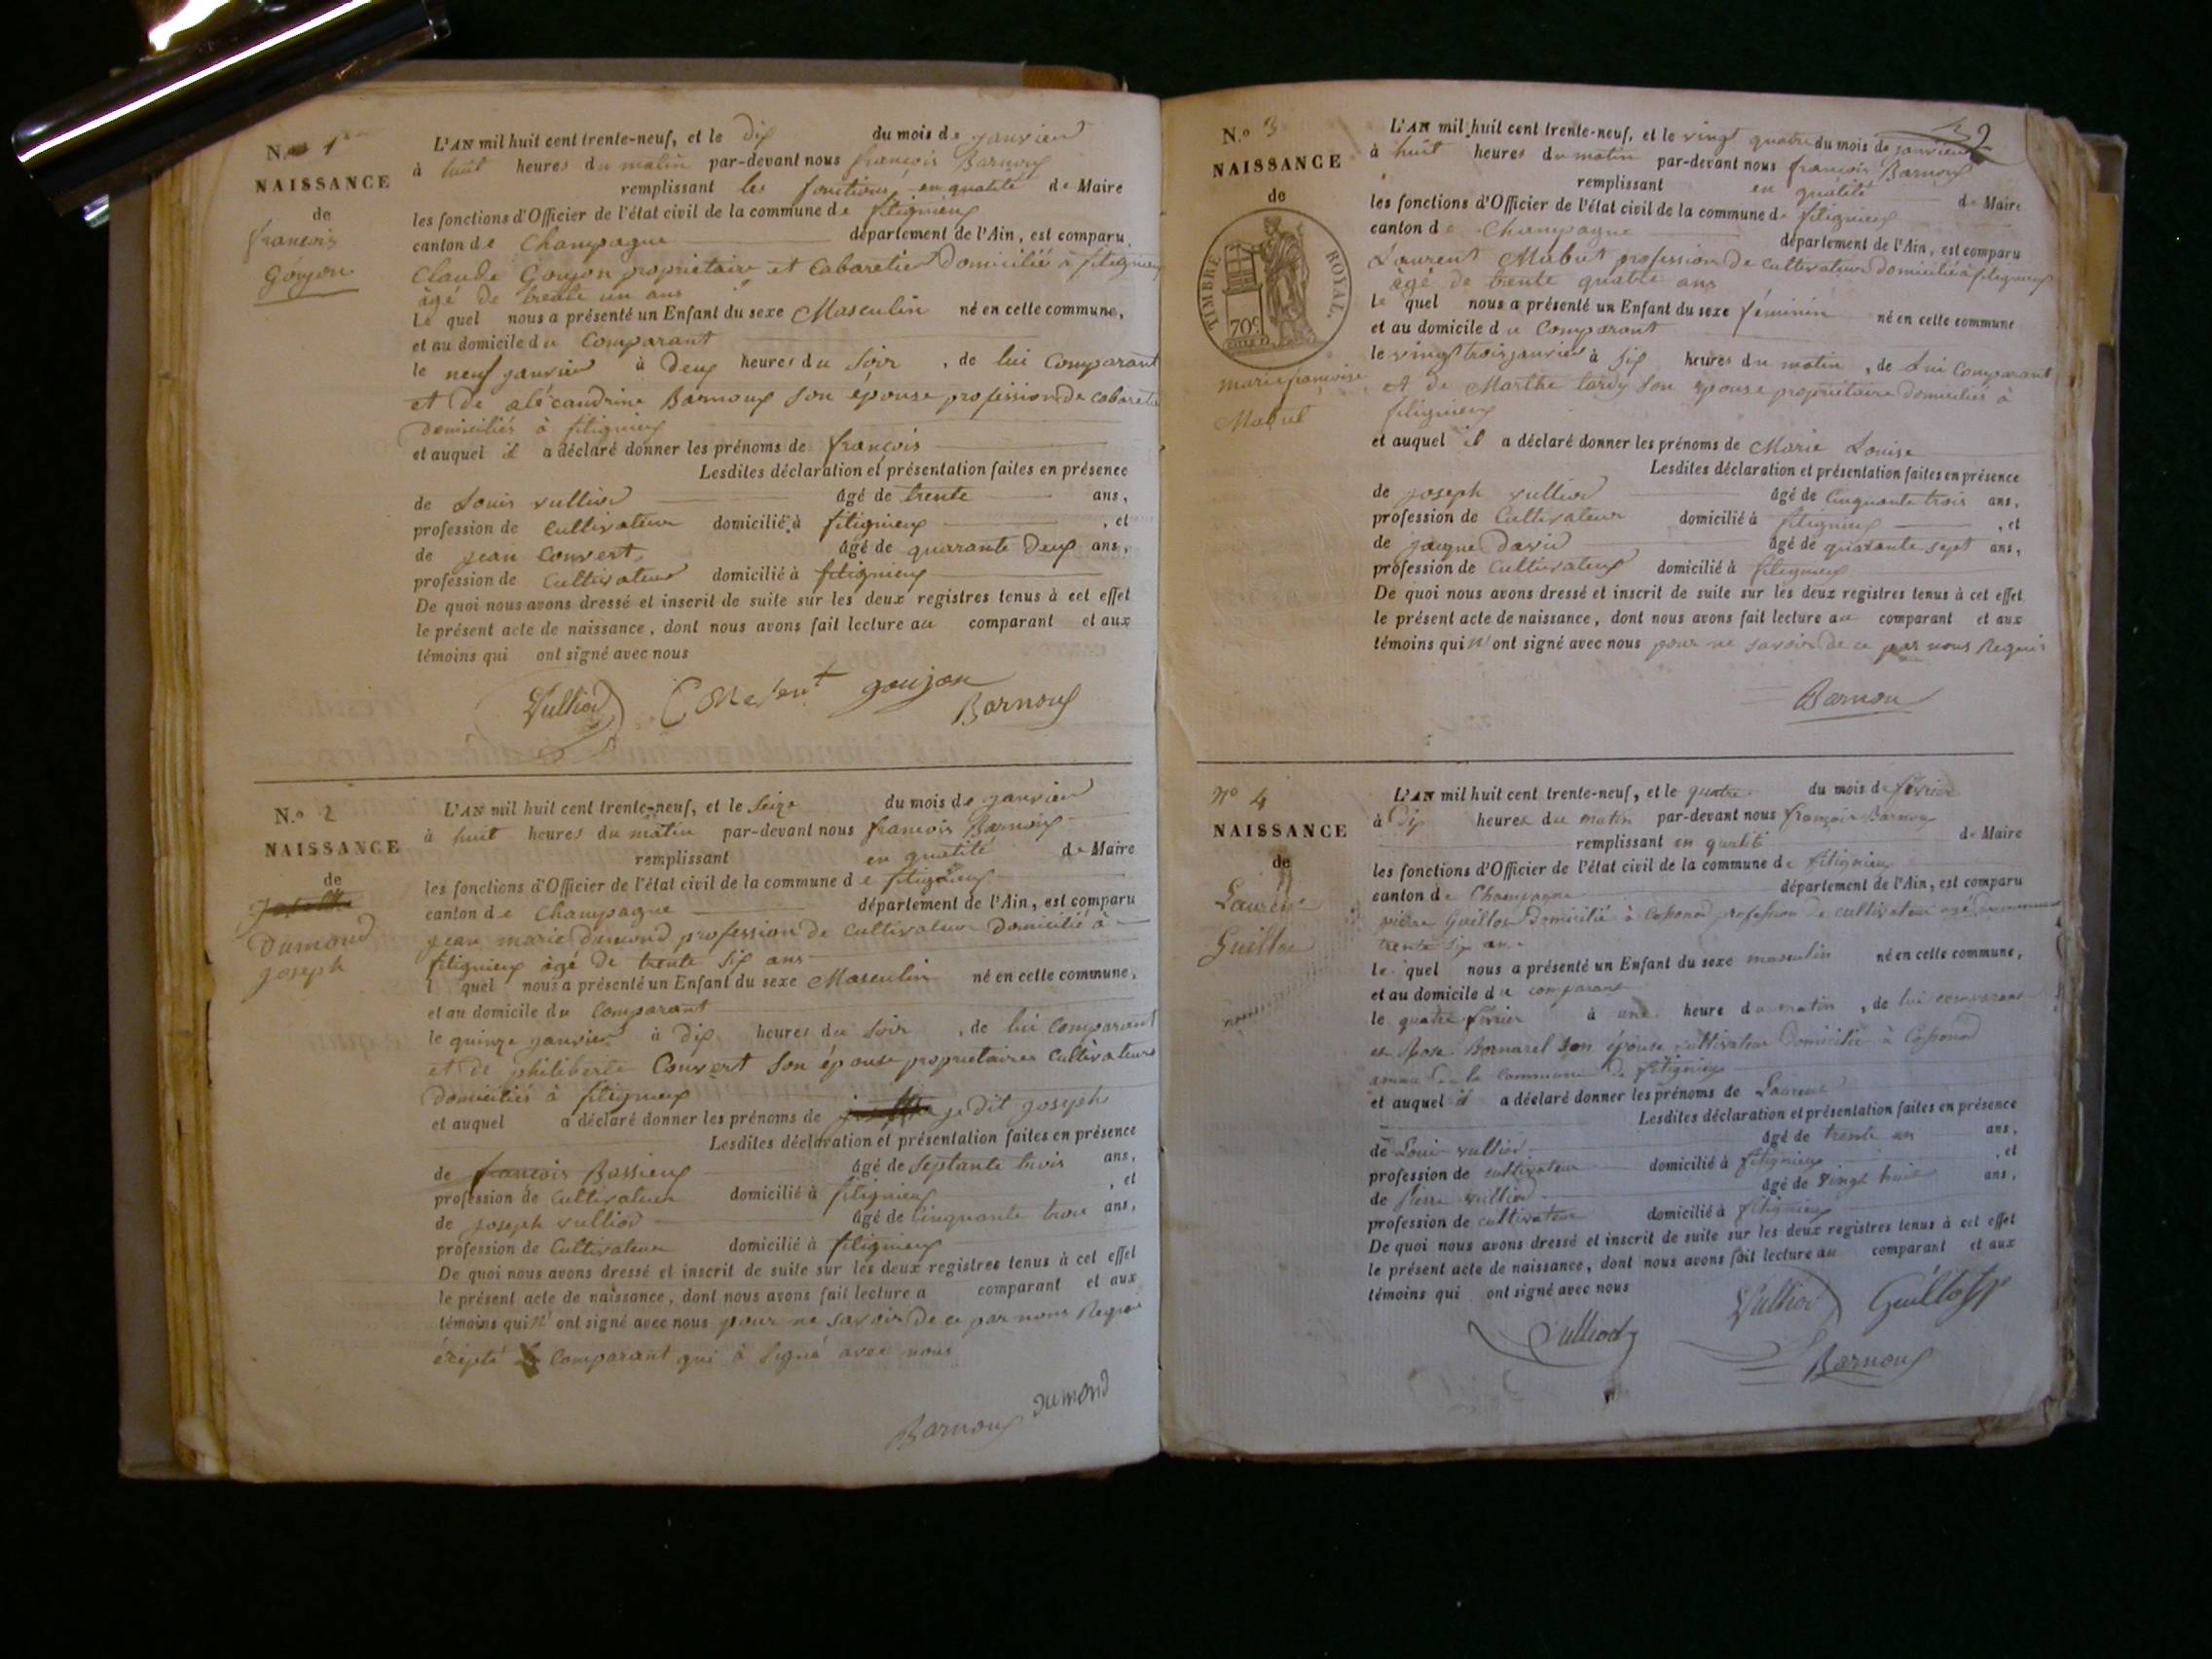 N.o 1er
NAISSANCE
de
françois
Goujon
L'AN mil huit cent trente-neuf, et le dix du mois de janvier
à huit heures du matin par-devant nous françois Barnoux
remplissant les fonctions en qualité de Maire
les fonctions d'Officier de l'état civil de la commune de fitignieux
canton de Champagne département de l'Ain, est comparu
Claude Goujon propriétaire et Cabaretier Domicilié à fitignieux
âgé de trente un ans
Le quel nous a présenté un Enfant du sexe Masculin né en cette commune,
et au domicile du Comparant
le neuf janvier à Deux heures du Soir, de lui Comparant
et de aléxandrine Barnoux Son épouse profession de cabaretier
Domiciliés à fitignieux
et auquel il a déclaré donner les prénoms de françois
Lesdites déclaration et présentation faites en présence
de Louis vulliod âgé de trente ans,
profession de Cultivateur domicilié à fitignieux, et
de jean Convert âgé de quarante Deux ans,
profession de Cultivateur domicilié à fitignieux
De quoi nous avons dressé et inscrit de suite sur les deux registres tenus à cet effet
le présent acte de naissance, dont nous avons fait lecture au comparant et aux
témoins qui ont signé avec nous
Vulliod Convert goujon
Barnoux
N.o 2
NAISSANCE
de
Dumond
joseph
L'AN mil huit cent trente-neuf, et le Seize du mois de janvier
à huit heures du matin par-devant nous françois Barnoux
remplissant en qualité de Maire
les fonctions d'Officier de l'état civil de la commune de fitignieux
canton de Champagne département de l'Ain, est comparu
jean marie Dumond profession de Cultivateur Domicilié à
fitignieux âgé de trente Six ans
l quel nous a présenté un Enfant du sexe Masculin né en cette commune,
et au domicile du Comparant
le quinze janvier à dix heures du Soir, de lui Comparant
et de philiberte Convert Son épouse propriétaires Cultivateurs
Domiciliés à fitignieux
et auquel a déclaré donner les prénoms de je dit joseph
Lesdites déclaration et présentation faites en présence
de françois Bassieux âgé de Septante trois ans,
profession de Cultivateur domicilié à fitignieux, et
de joseph vulliod âgé de Cinquante trois ans,
profession de Cultivateur domicilié à fitignieux
De quoi nous avons dressé et inscrit de suite sur les deux registres tenus à cet effet
le présent acte de naissance, dont nous avons fait lecture a comparant et aux
témoins qui n'ont signé avec nous pour ne savoir De ce par nous Requis
éxépté le Comparant qui à Signé avec nous
Barnoux Dumond
2
N.o 3
NAISSANCE
de
TIMBRE ROYAL.
70c
marie françoise
Mabut
L'AN mil huit cent trente-neuf, et le vingt quatre du mois de janvier
à huit heures du matin par-devant nous françois Barnoux
remplissant en qualité de Maire
les fonctions d'Officier de l'état civil de la commune de fitignieux
canton de Champagne département de l'Ain, est comparu
Laurent Mabut profession De Cultivateur domicilié à fitignieux
âgé de trente quatre ans
Le quel nous a présenté un Enfant du sexe féminin né en cette commune
et au domicile du Comparant
le vingt trois janvier à Six heures du matin, de Lui Comparant
et de Marthe tardy Son épouse propriétaire domiciliés à
fitignieux
et auquel il a déclaré donner les prénoms de Marie Louise
Lesdites déclaration et présentation faites en présence
de joseph vulliod âgé de Cinquante trois ans,
profession de Cultivateur domicilié à fitignieux, et
de jacque David âgé de quarante sept ans,
profession de Cultivateur domicilié à fitignieux
De quoi nous avons dressé et inscrit de suite sur les deux registres tenus à cet effet
le présent acte de naissance, dont nous avons fait lecture au comparant et aux
témoins qui n'ont signé avec nous pour ne savoir de ce par nous Requis
Barnou
No 4
NAISSANCE
de
Laurent
Guillot
L'AN mil huit cent trente-neuf, et le quatre du mois de février
à Dix heures du matin par-devant nous françois Barnoux
remplissant en qualité de Maire
les fonctions d'Officier de l'état civil de la commune de fitignieux
canton de Champagne département de l'Ain, est comparu
pierre Guillot Domicilié à profession de cultivateur agé
trente Six ans
le quel nous a présenté un Enfant du sexe masculin né en cette commune,
et au domicile du comparant
le quatre février à une heure du matin, de lui comparant
et Rose Bornarel Son épouse cultivateur Domicilié à
de la commune de fitignieux
et auquel il a déclaré donner les prénoms de Laurent
Lesdites déclaration et présentation faites en présence
de Louis vulliod âgé de trente un ans,
profession de cultivateur domicilié à fitignieux, et
de pierre vulliod âgé de vingt huit ans,
profession de cultivateur domicilié à fitignieux
De quoi nous avons dressé et inscrit de suite sur les deux registres tenus à cet effet
le présent acte de naissance, dont nous avons fait lecture au comparant et aux
témoins qui ont signé avec nous
Vulliod Guillot
Vulliod
Barnoux